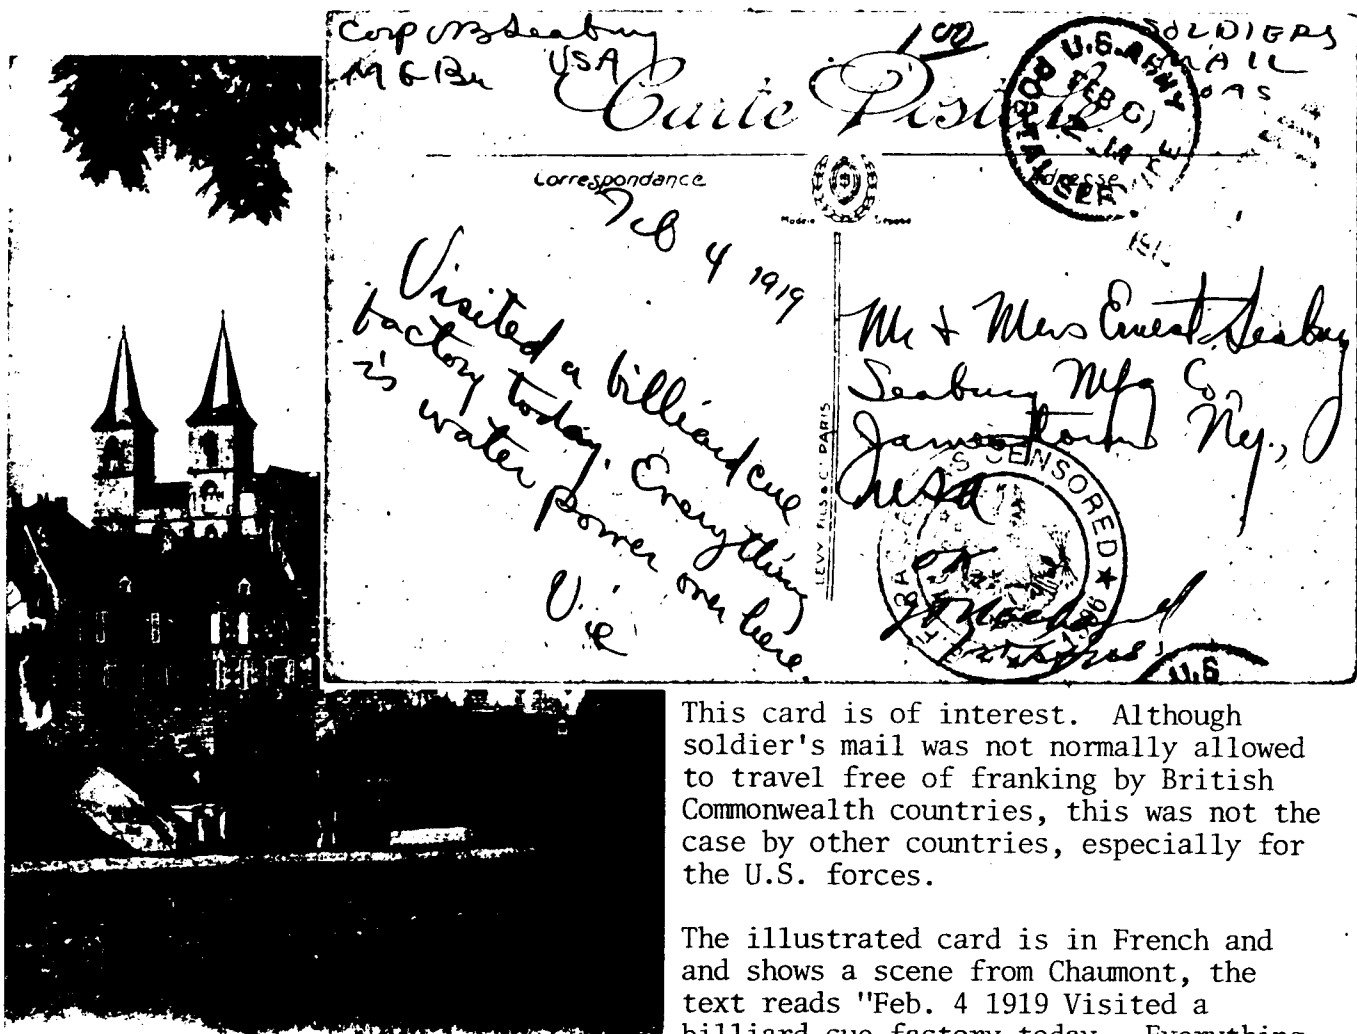 Corp VB Seabury
M G Bn USA
100
SOLDIERS
MAIL
Carte Postale
U.S. ARMY
POSTAL SERVICE
FEB 6
Correspondance
Adresse
Modèle
Feb 4 1919
Visited a billiard cue
factory today. Everything
is water power over here.
Vic
LEVY FILS & Cie PARIS
Mr & Mrs Ernest Seabury
Seabury Mfg Co.,
Jamestown Ny.,
USA
CENSORED
OK
U.S
This card is of interest. Although
soldier's mail was not normally allowed
to travel free of franking by British
Commonwealth countries, this was not the
case by other countries, especially for
the U.S. forces.
The illustrated card is in French and
and shows a scene from Chaumont, the
text reads "Feb. 4 1919 Visited a
billiard cue factory today. Everything